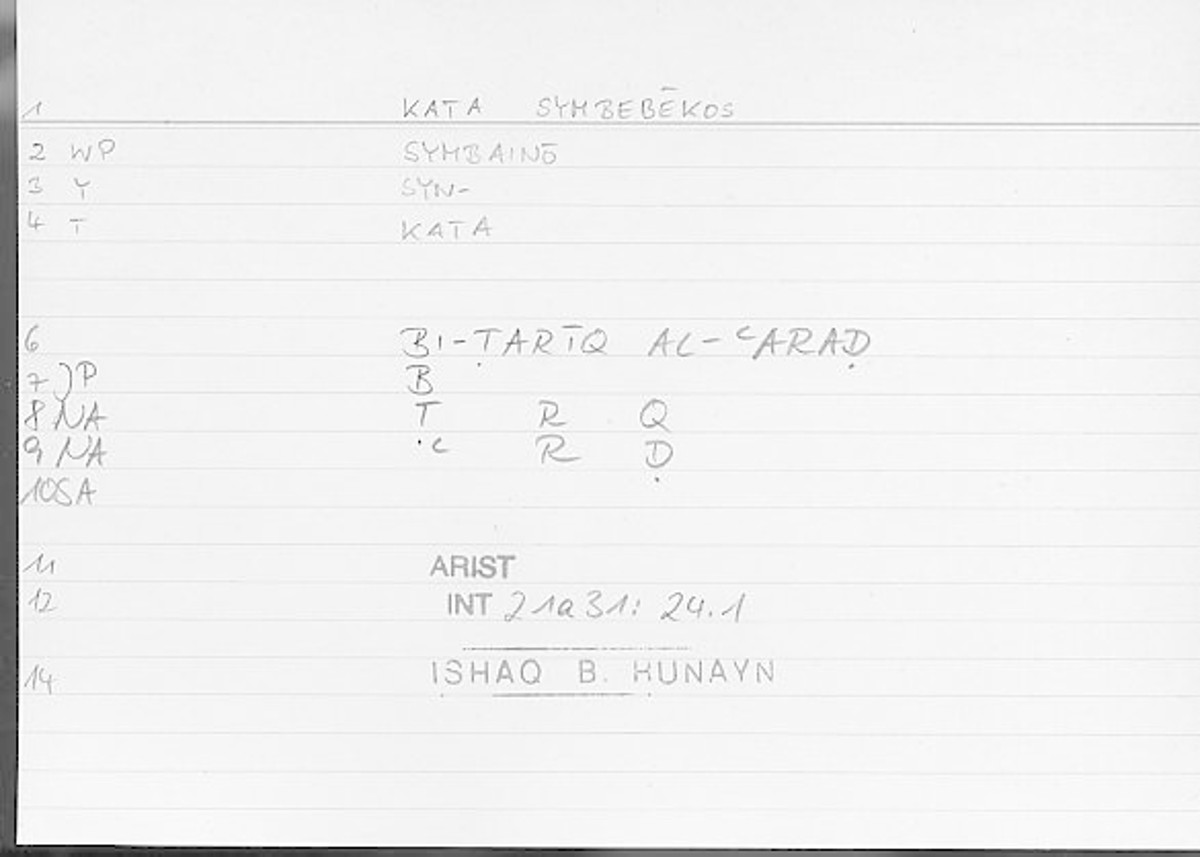 1 KATA SYMBEBĒKOS
2 WP SYMBAINŌ
3 Y SYN-
4 T KATA
6 BI-ṬARĪQ AL-ʿARAḌ
7 )P B
8 NA Ṭ R Q
9 NA ʿ R Ḍ
10SA
11 ARIST
12 INT 21a31: 24.1
14 ISHAQ B. HUNAYN